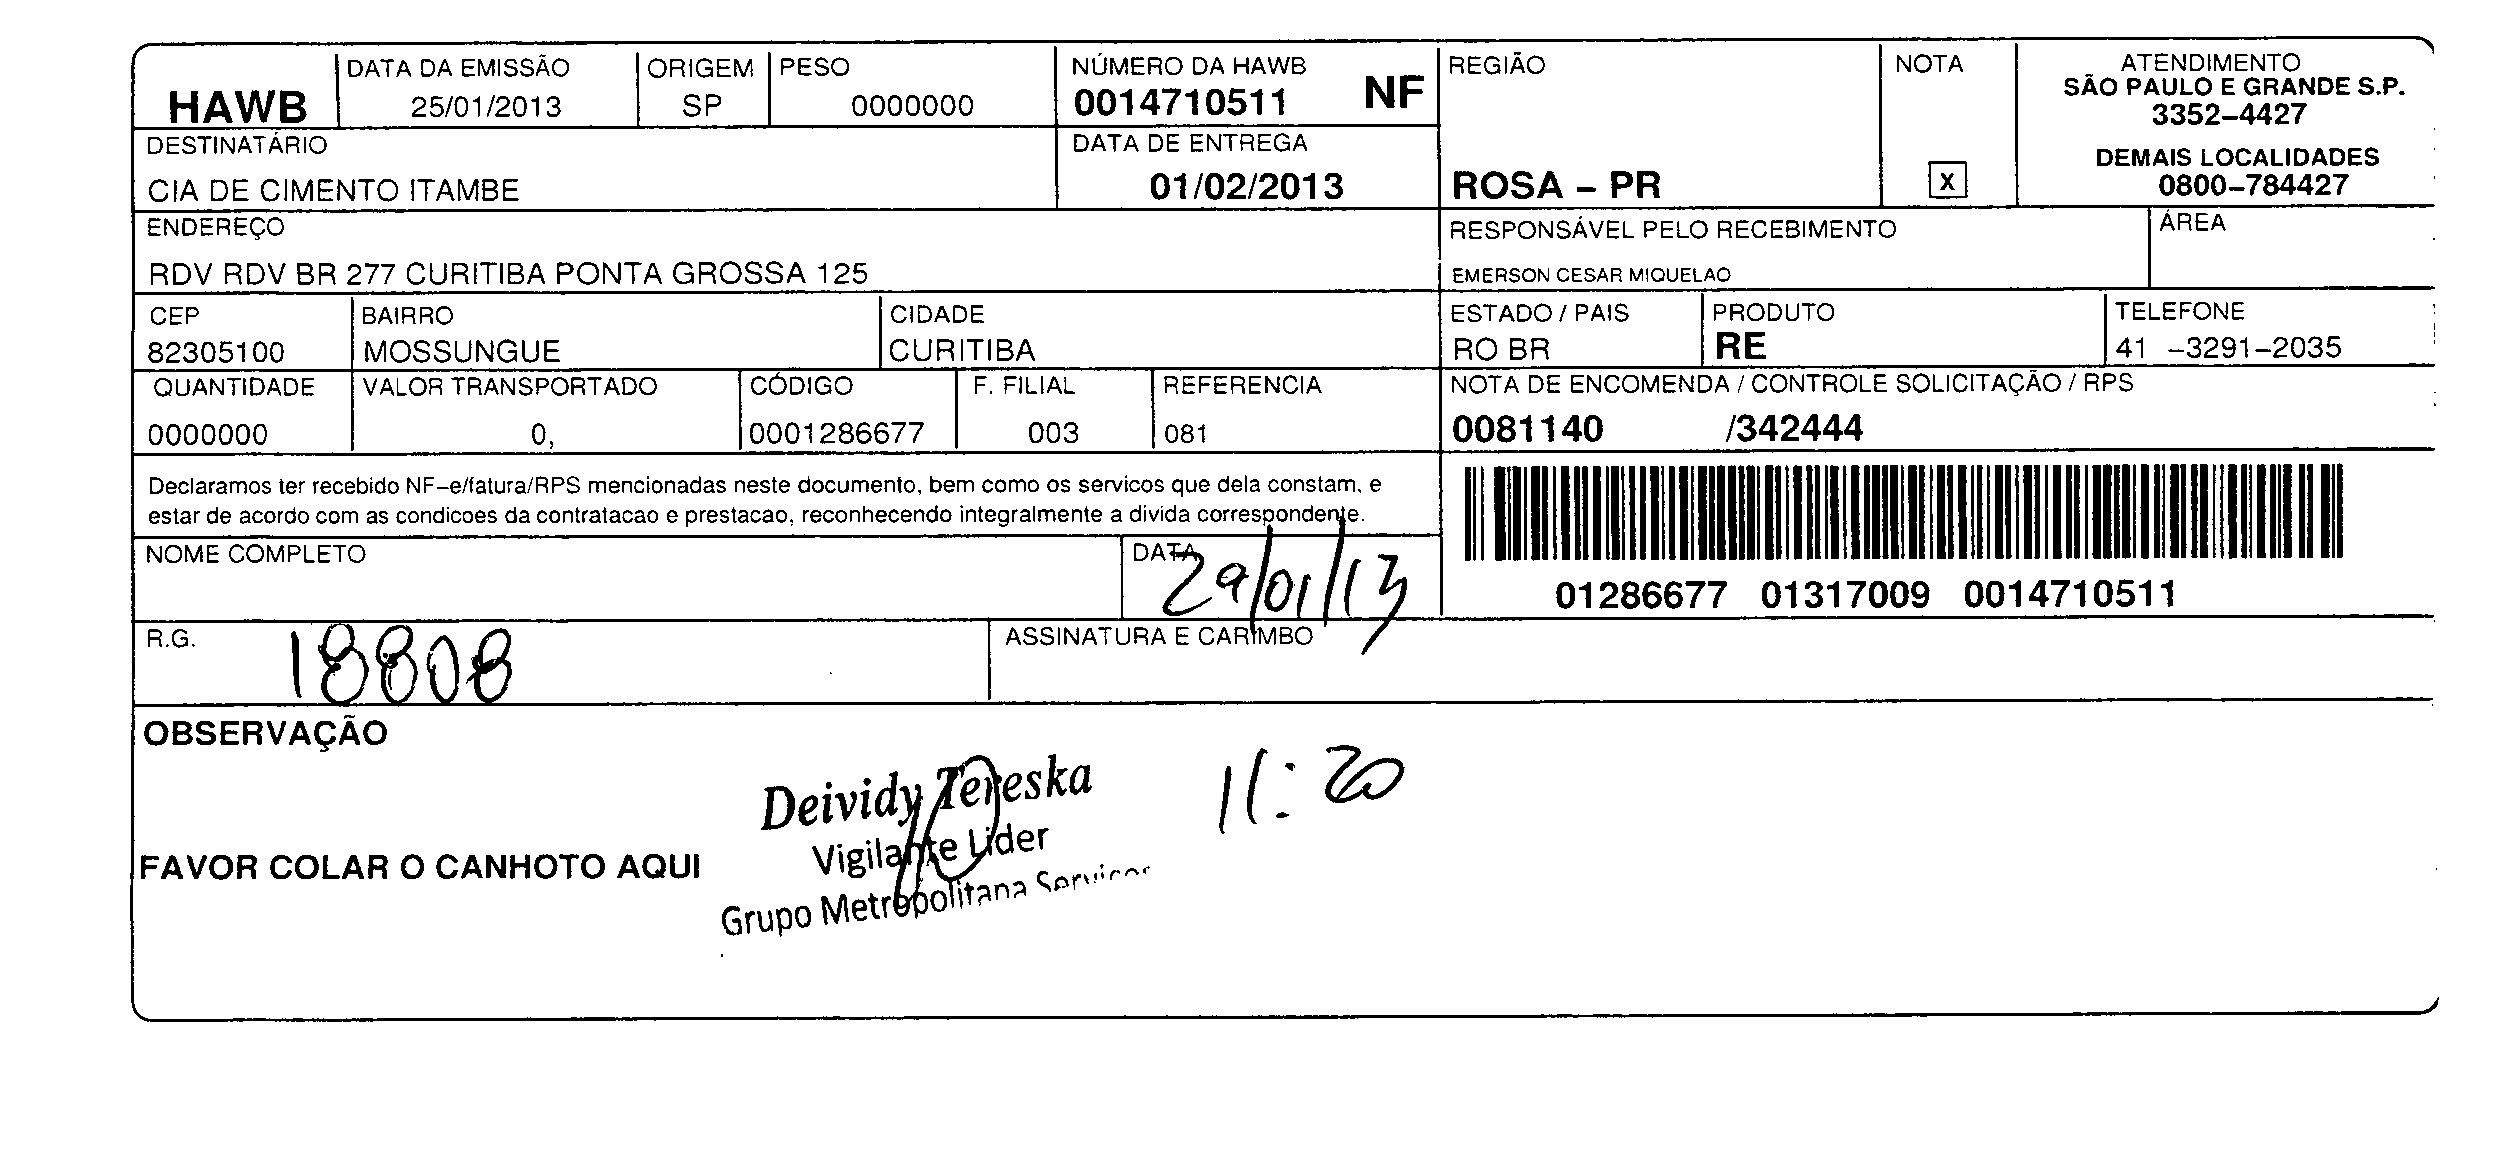 HAWB
DATA DA EMISSÃO
25/01/2013
ORIGEM
SP
PESO
0000000
NÚMERO DA HAWB
0014710511 NF
REGIÃO
ROSA – PR
NOTA
X
ATENDIMENTO
SÃO PAULO E GRANDE S.P.
3352–4427
DEMAIS LOCALIDADES
0800–784427
DESTINATÁRIO
CIA DE CIMENTO ITAMBE
DATA DE ENTREGA
01/02/2013
ENDEREÇO
RDV RDV BR 277 CURITIBA PONTA GROSSA 125
RESPONSÁVEL PELO RECEBIMENTO
EMERSON CESAR MIQUELAO
ÁREA
CEP
82305100
BAIRRO
MOSSUNGUE
CIDADE
CURITIBA
ESTADO / PAIS
RO BR
PRODUTO
RE
TELEFONE
41 –3291–2035
QUANTIDADE
0000000
VALOR TRANSPORTADO
0,
CÓDIGO
0001286677
F. FILIAL
003
REFERENCIA
081
NOTA DE ENCOMENDA / CONTROLE SOLICITAÇÃO / RPS
0081140 /342444
Declaramos ter recebido NF–e/fatura/RPS mencionadas neste documento, bem como os servicos que dela constam, e
estar de acordo com as condicoes da contratacao e prestacao, reconhecendo integralmente a divida correspondente.
NOME COMPLETO
DATA
29/01/13
01286677 01317009 0014710511
R.G.
18808
ASSINATURA E CARIMBO
OBSERVAÇÃO
Deividy Tereska
11:20
Vigilante Líder
FAVOR COLAR O CANHOTO AQUI
Grupo Metropolitana Serviços